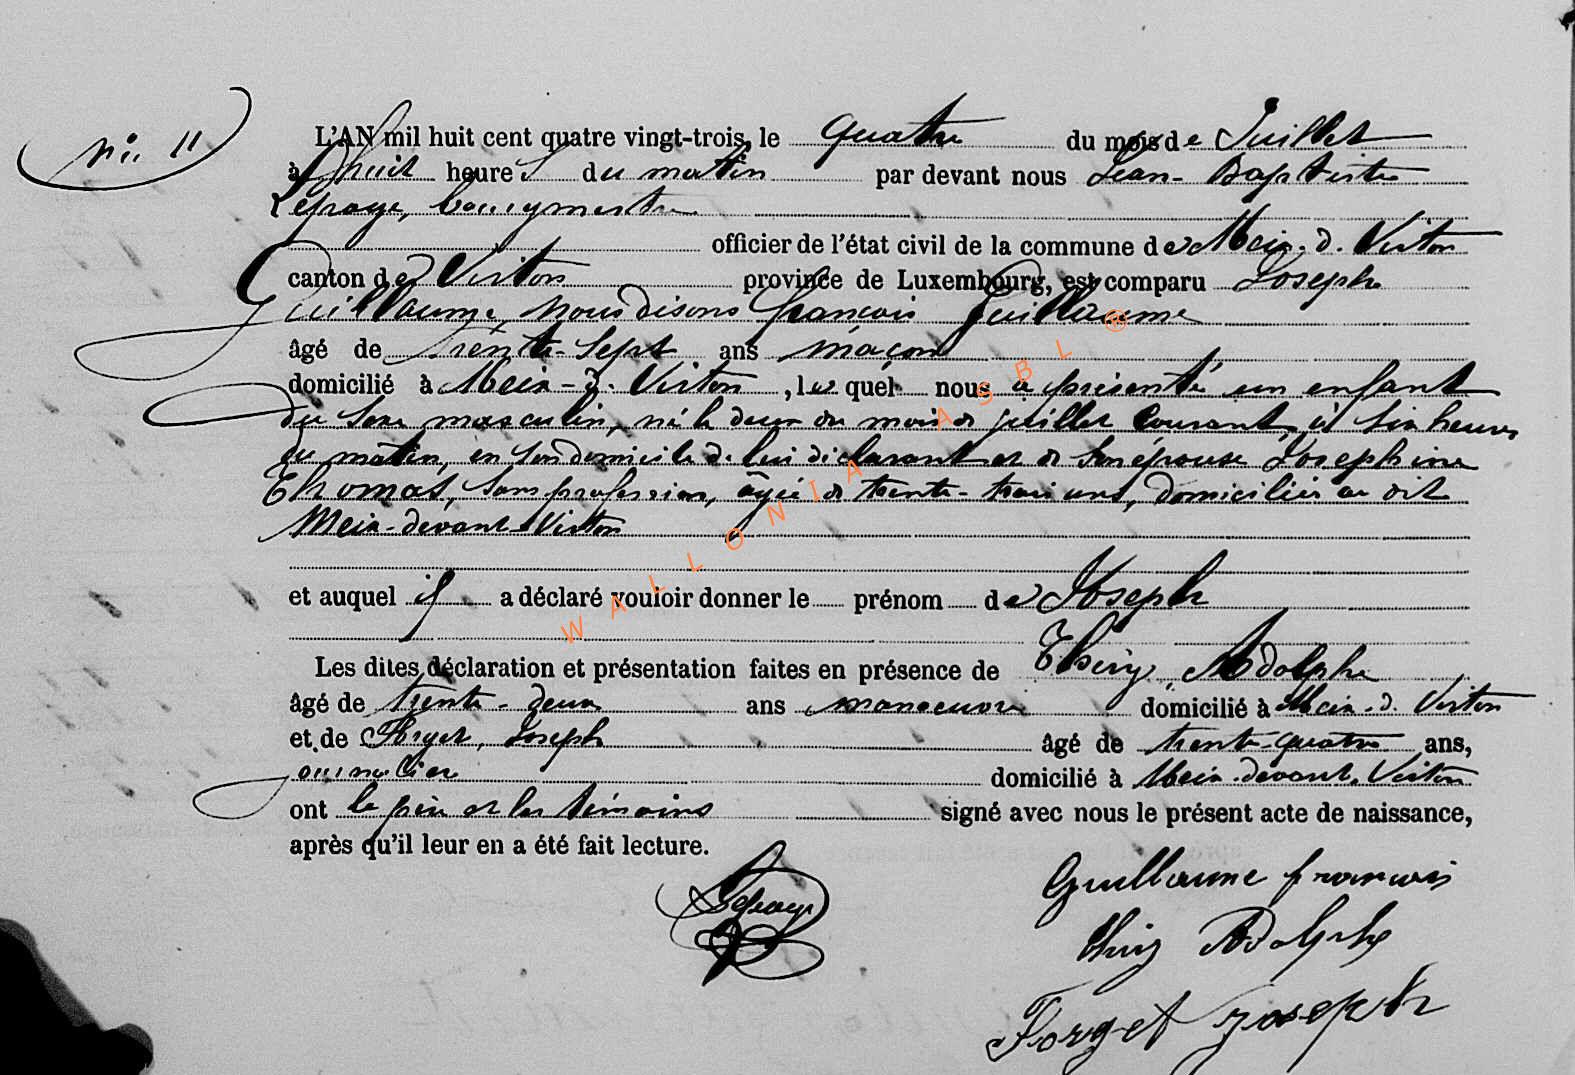 n° 11
L'AN mil huit cent quatre vingt-trois, le quatre du mois de Juillet
à huit heures du matin par devant nous Jean-Baptiste
Lepage, bourgmestre
officier de l'état civil de la commune de Meix-d. Virton
canton de Virton province de Luxembourg, est comparu Joseph
Guillaume, nous disons françois Guillaume
âgé de trente-sept ans maçon
domicilié à Meix-d. Virton, lequel nous a présenté un enfant
du sexe masculin, né le deux du mois de juillet courant, à six heures
du matin, en son domicile de lui déclarant et de son épouse Joséphine
Thomas, sans profession, âgée de trente-trois ans, domiciliée au dit
Meix-devant-Virton
et auquel il a déclaré vouloir donner le prénom de Joseph
Les dites déclaration et présentation faites en présence de Thiry, Adolphe
âgé de trente-deux ans manoeuvre domicilié à Meix-d. Virton
et de Forget, Joseph âgé de trente-quatre ans,
journalier domicilié à Meix-devant-Virton
ont le père et les témoins signé avec nous le présent acte de naissance,
après qu'il leur en a été fait lecture.
Lepage
Guillaume francois
thiry Adolphe
Forget joseph
WALLONIA ASBL ®